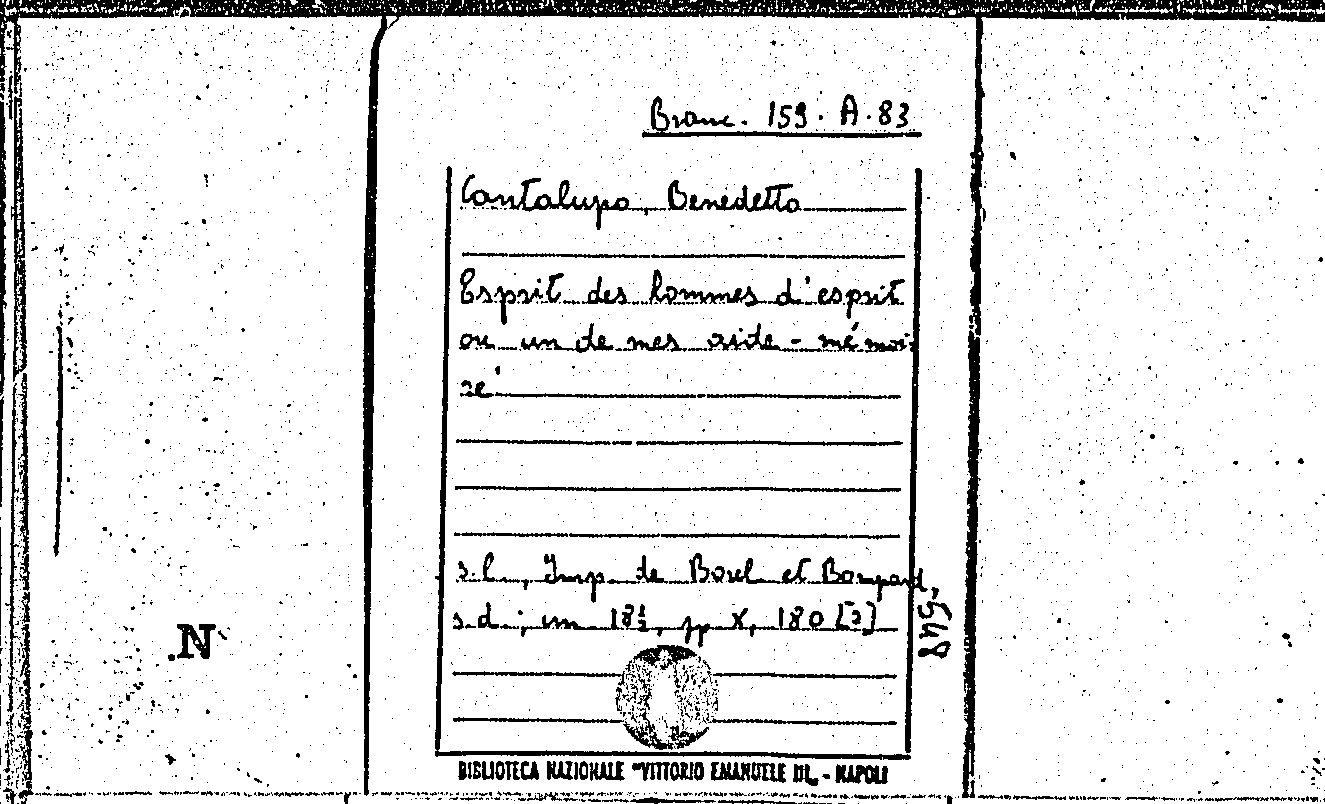 Branc. 159. A. 83
Cantalupo, Benedetto
Esprit des hommes d'esprit
ou un de mes aide - mémoi-
re
s.l., Imp. de Borel et Bompard,
s.d.; in 18º, pp X, 180 [2]
548
N.
BIBLIOTECA NAZIONALE "VITTORIO EMANUELE III„ - NAPOLI